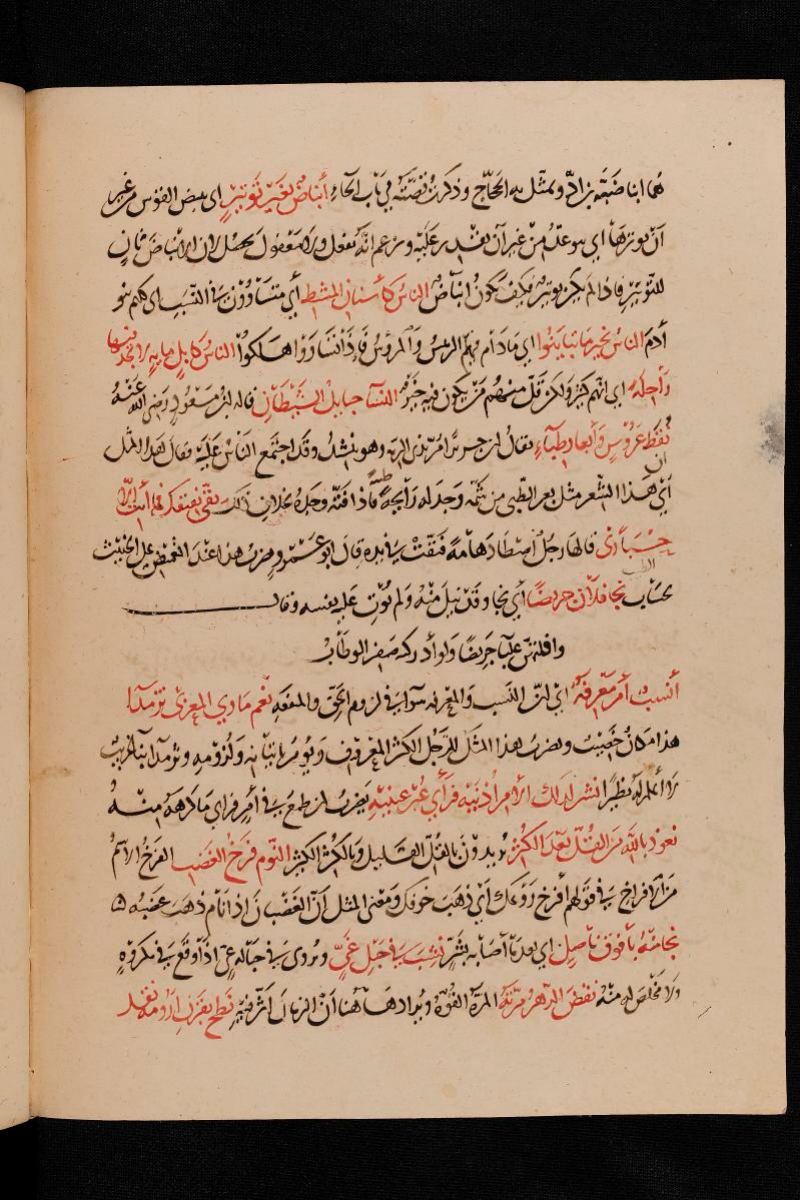 هما ابنا ضبّة بن ادّ وتمثّل به الحجّاج وذكرتُ قصّته في باب الحاء أنباضٌ بغير توتيرٍ اى ينبض القوس من غير
أن يوترها اى يتوعّد من غير أن يقدر عليه ويزعم انه يفعل ولا مفعول يحصل لان الانباض ثانٍ
للتوتير فاذا لم يكن توتير فكيف يكون انباض الناس كأسنان المشط أي متساوون في النسب اى كلهم بنو
آدم الناس بخير ما تباينوا اى ما دام فيهم الرئيس والمرؤس فإذا تساووا هلكوا الناس كابل مايةٍ لا تجد فيها
راحلة اى انهم كثير ولكن قلّ منهم من يكون فيه خير النساء حبايل الشيطان قاله ابن مسعود رضى الله عنه
نُقَط عروسٍ وأبعار ظباء يقال ان جريرًا مرّ بذى الرمه وهو ينشد وقد اجتمع الناس عليه فقال هذا المثل
أي هذا الشعر مثل بعر الظبى من شمّه وجد له رايحة طيبة فاذا فتّه وجده بخلاف ذلك نقّى نقيقك فما أنت الّا
حبارى قالها رجل اصطاد هامة فنقّت في يده قال ابو عمرو يضرب هذا عند التغميض على الخبيث
بحساب الطيب نجا فلان جريضًا أي نجا وقد نيل منه ولم يؤت على نفسه وقال
وافلتهنّ علباء جريضًا ولو أدركه صفر الوطاب
أنسب أم معرفة اى انّ النسب والمعرفه سواء في لزوم الحق والمنفعه نعم مأوى المعزى ثرمداء
هذا مكان خصيب ويضرب هذا المثل للرجل الكثير المعروف ويؤمر باتيانه ولزومه وثرمداء بناء غريب
لا أعلم له نظيرًا نشر لذلك الامر اذنيه فرأى عُبر عينيه يضرب لمن طمع في أمر فراى ما كرهه منه
نعوذ بالله من القُلّ بعد الكُثر يريدون بالقُلّ القليل وبالكُثر الكثير النوم فرخ الغضب الفرخ الاسم
من الافراخ في قولهم أفرخ روعك أي ذهب خوفك ومعنى المثل أن الغضبان اذا نام ذهب غضبه
نجا منه بأفوق ناصل اى بعد ما أصابه بشر نشب في حبل غيّ ويروى في حباله غى اذا وقع في مكروه
ولا مخلص له منه نقض الدهر مرّته المرّة القوّة ويراد ها هنا أن الزمان أثّر فيه نطح بقرن ارومه نقد